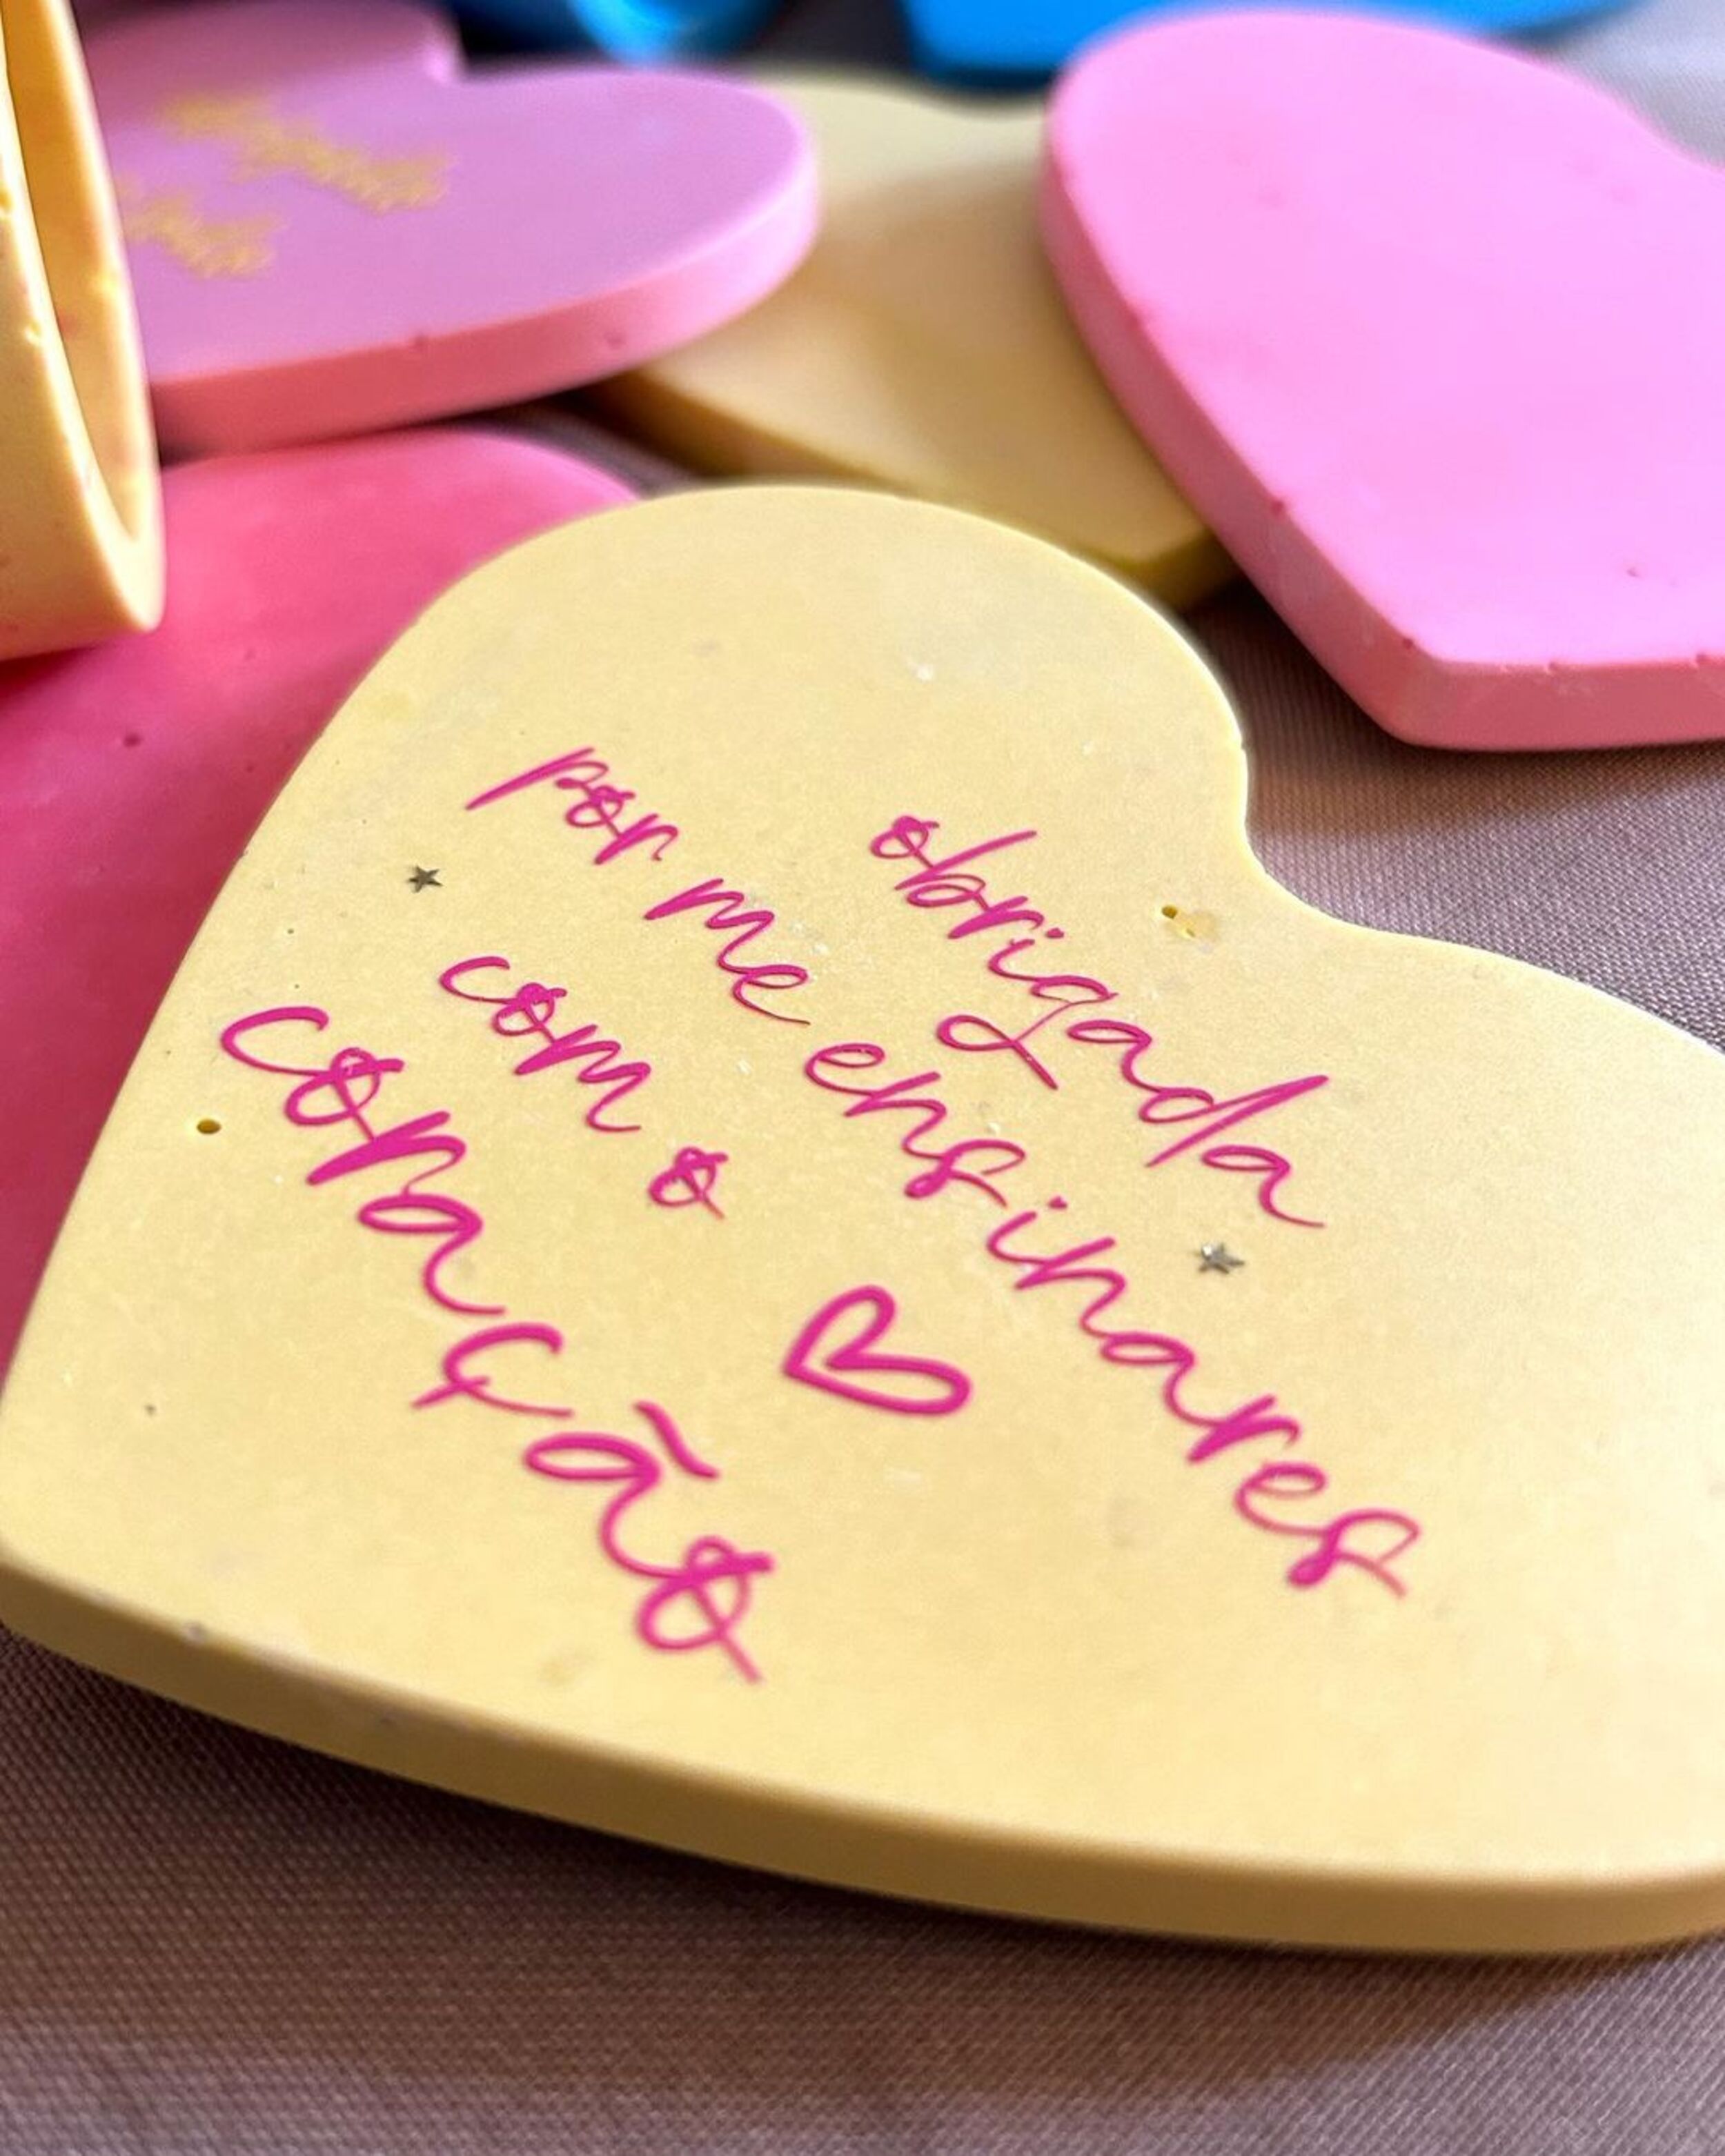 obrigada
por me ensinares
com o
coração